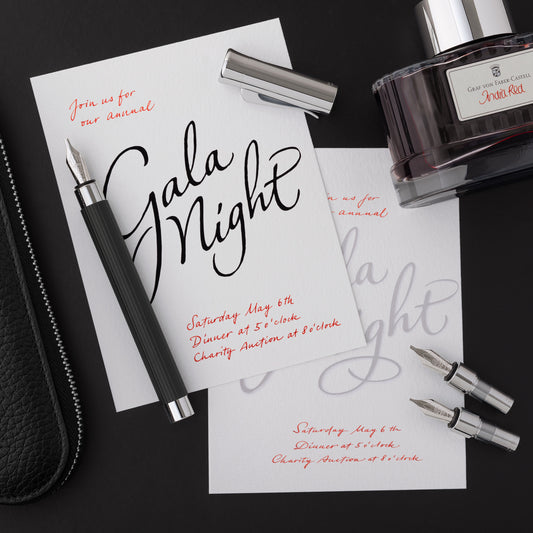 Join us for
our annual
Gala
Night
Saturday May 6th
Dinner at 5 o'clock
Charity Auction at 8 o'clock
GRAF VON FABER-CASTELL
India Red
us for
annual
ala
Night
Saturday May 6th
Dinner at 5 o'clock
Charity Auction at 8 o'clock